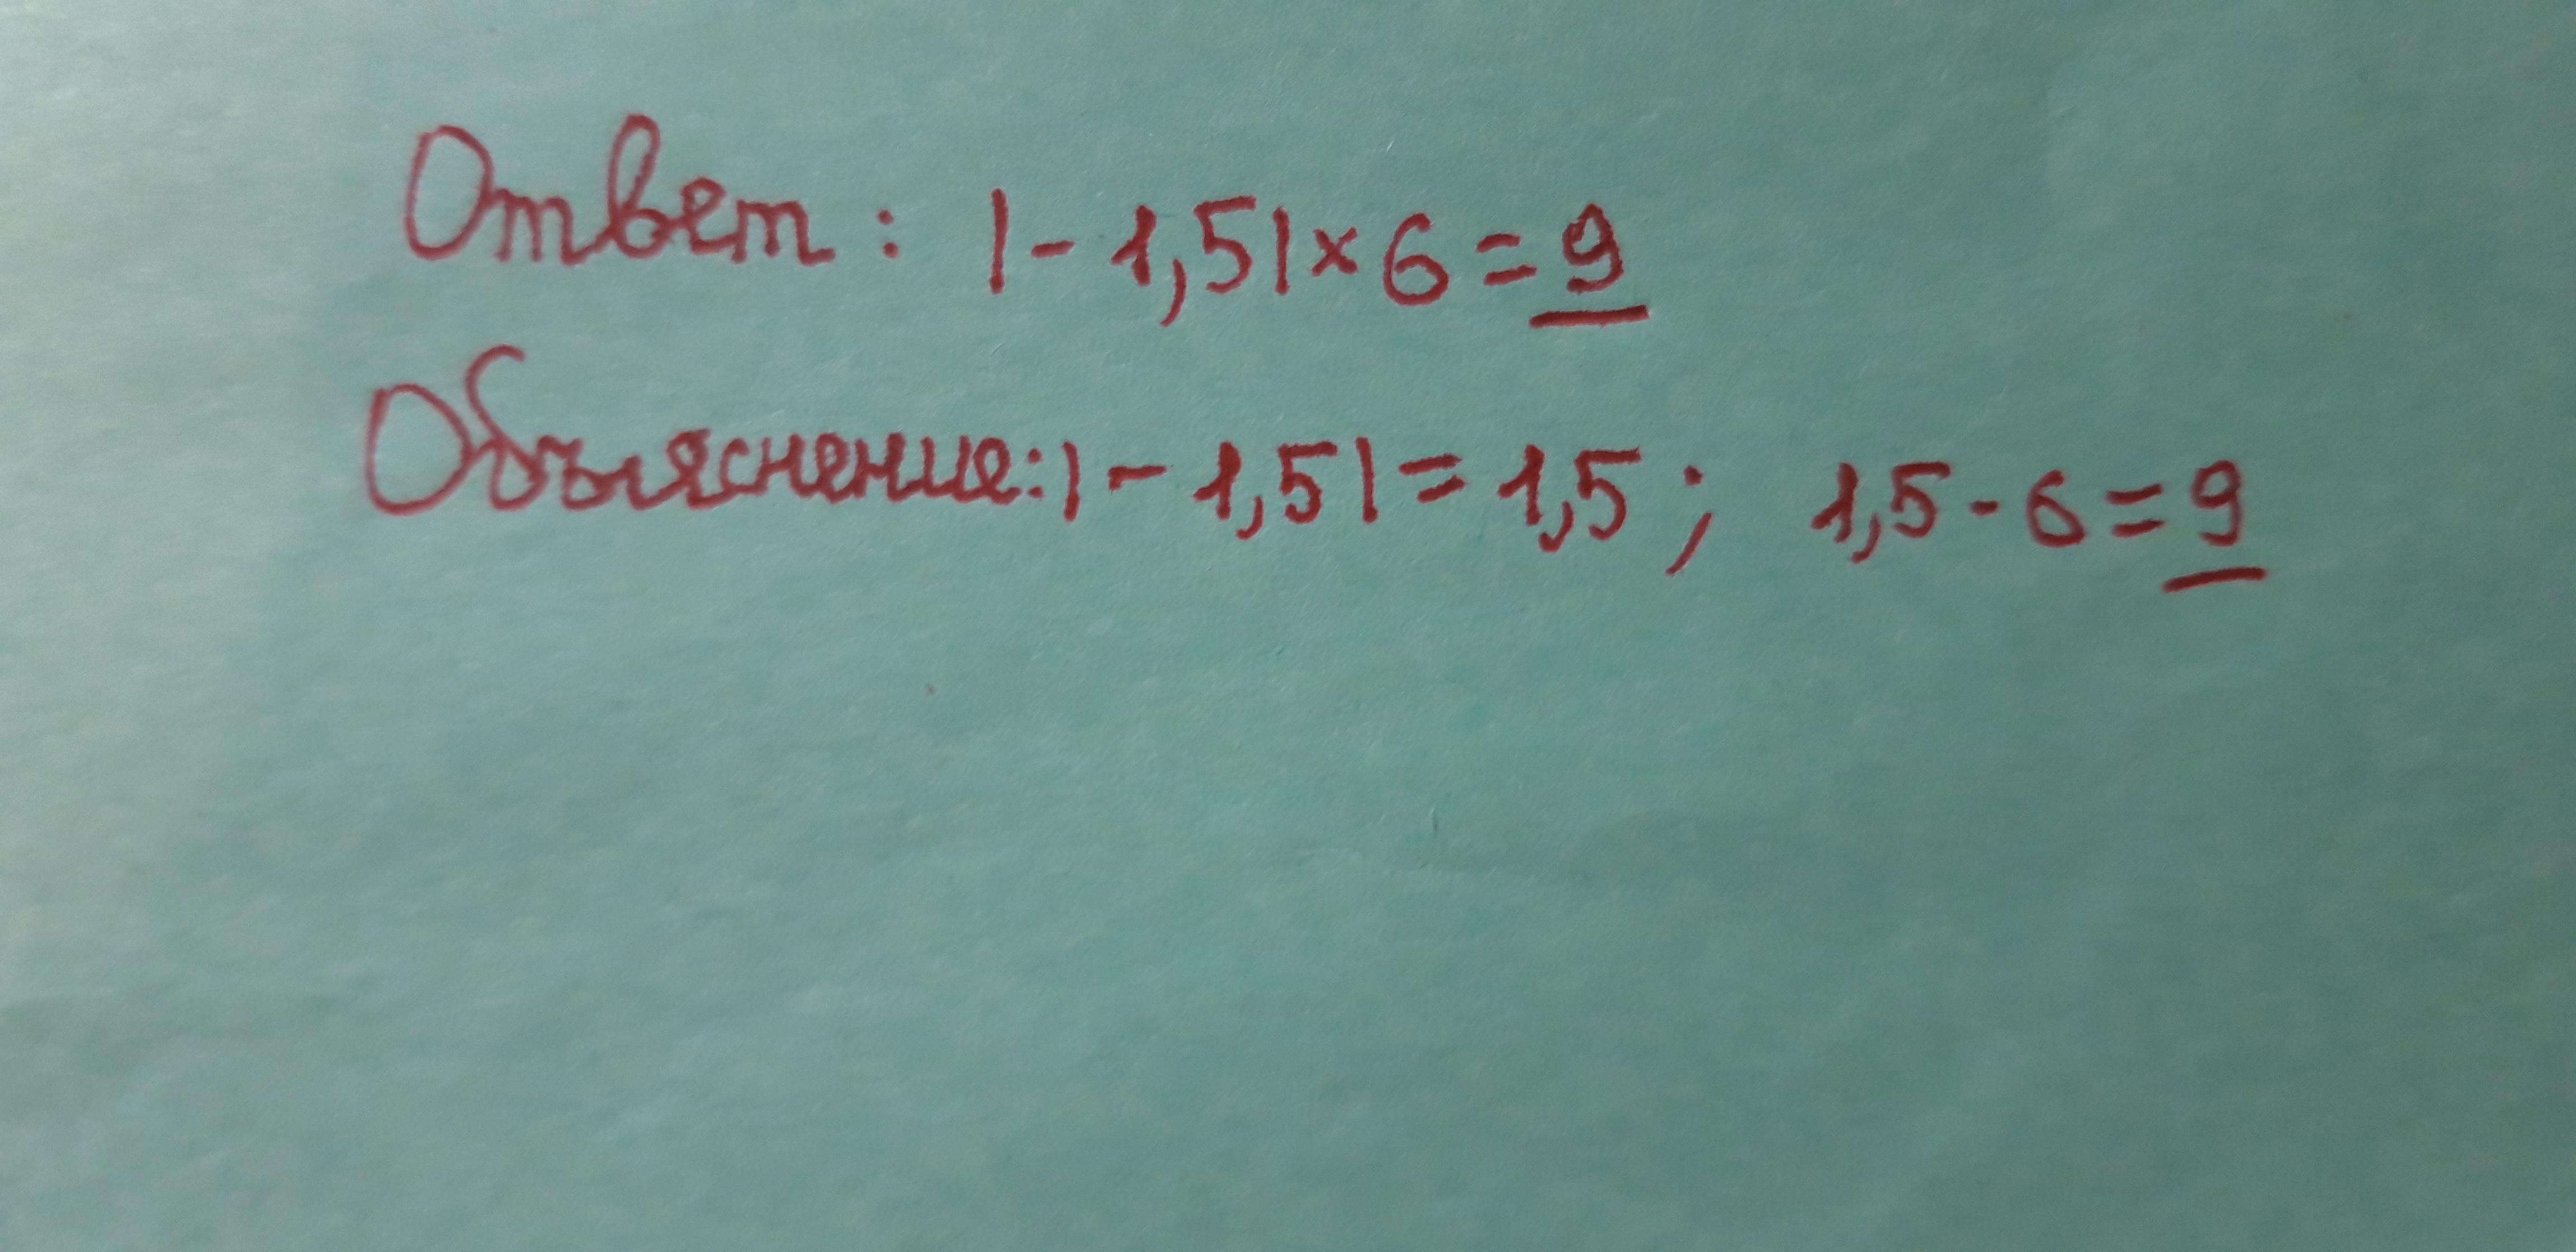 Ответ: |-1,5|×6=9
Объяснение:|-1,5|=1,5; 1,5-6=9